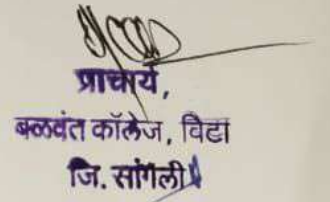 प्राचार्य,
बळवंत कॉलेज, विटा
जि. सांगली